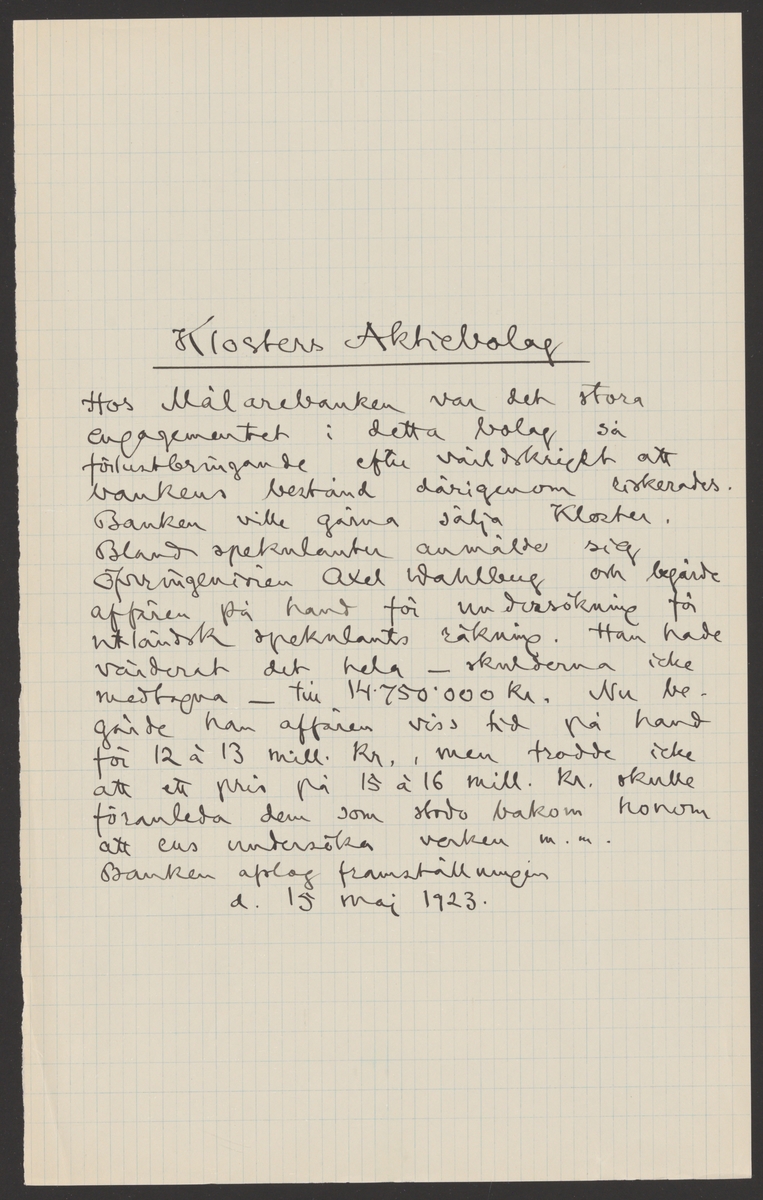 Klosters Aktiebolag
Hos Mälarebanken var det stora
engagementet i detta bolag så
förlustbringande efter världskriget att
bankens bestånd därigenom riskerades.
Banken ville gärna sälja Kloster.
Bland spekulanter anmälde sig
Överingeniören Axel Wahlberg och begärde
affären på hand för undersökning för
utländsk spekulants räkning. Han hade
värderat det hela — skulderna icke
medtagna — till 14.750.000 Kr. Nu be-
gärde han affären viss tid på hand
för 12 à 13 mill. Kr., men trodde icke
att ett pris på 15 à 16 mill. Kr. skulle
föranleda dem som stodo bakom honom
att ens undersöka verken m.m.
Banken afslog framställningen
d. 15 maj 1923.